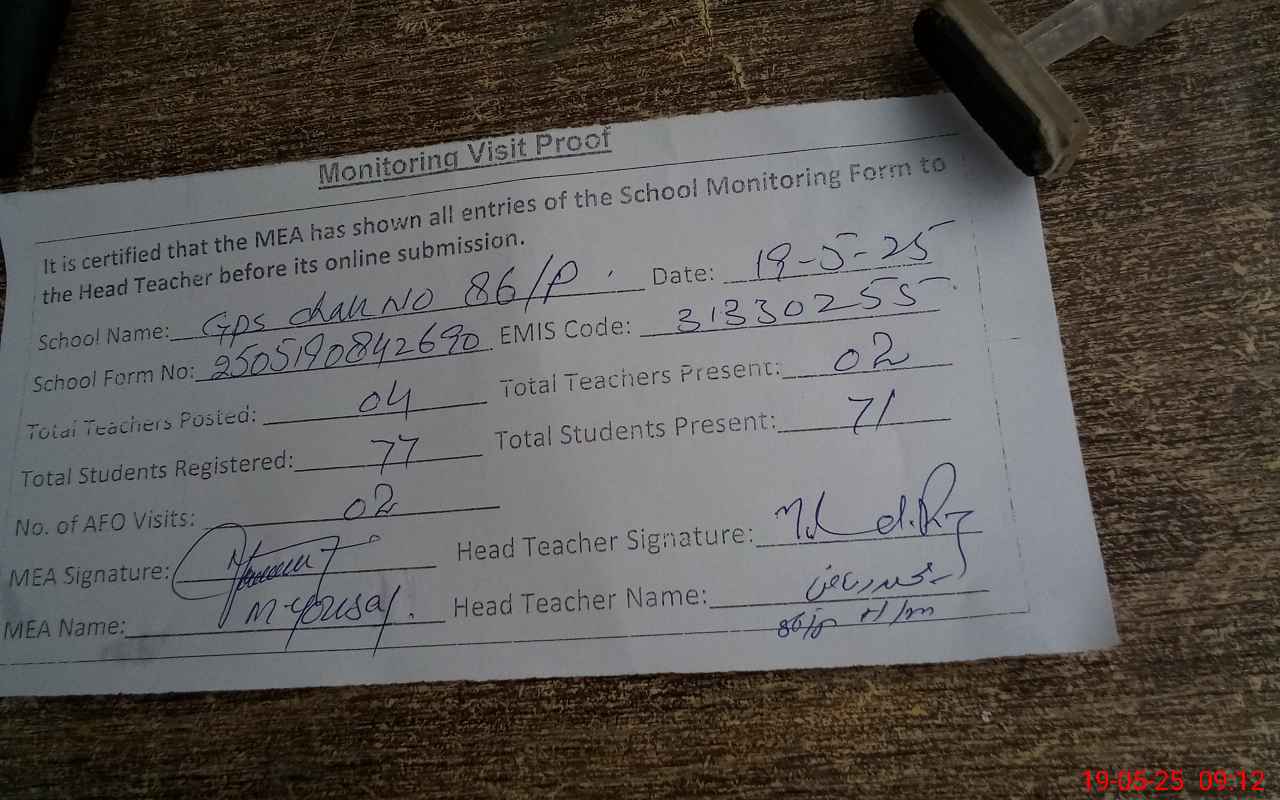 Monitoring Visit Proof
It is certified that the MEA has shown all entries of the School Monitoring Form to
the Head Teacher before its online submission.
School Name: GPS chak NO 86/P. Date: 19-5-25
School Form No: 2505190842690 EMIS Code: 31330255
Total Teachers Posted: 04 Total Teachers Present: 02
Total Students Registered: 77 Total Students Present: 71
No. of AFO Visits: 02
MEA Signature: Head Teacher Signature:
MEA Name: M-Yousaf. Head Teacher Name:
86/P
19-05-25 09:12